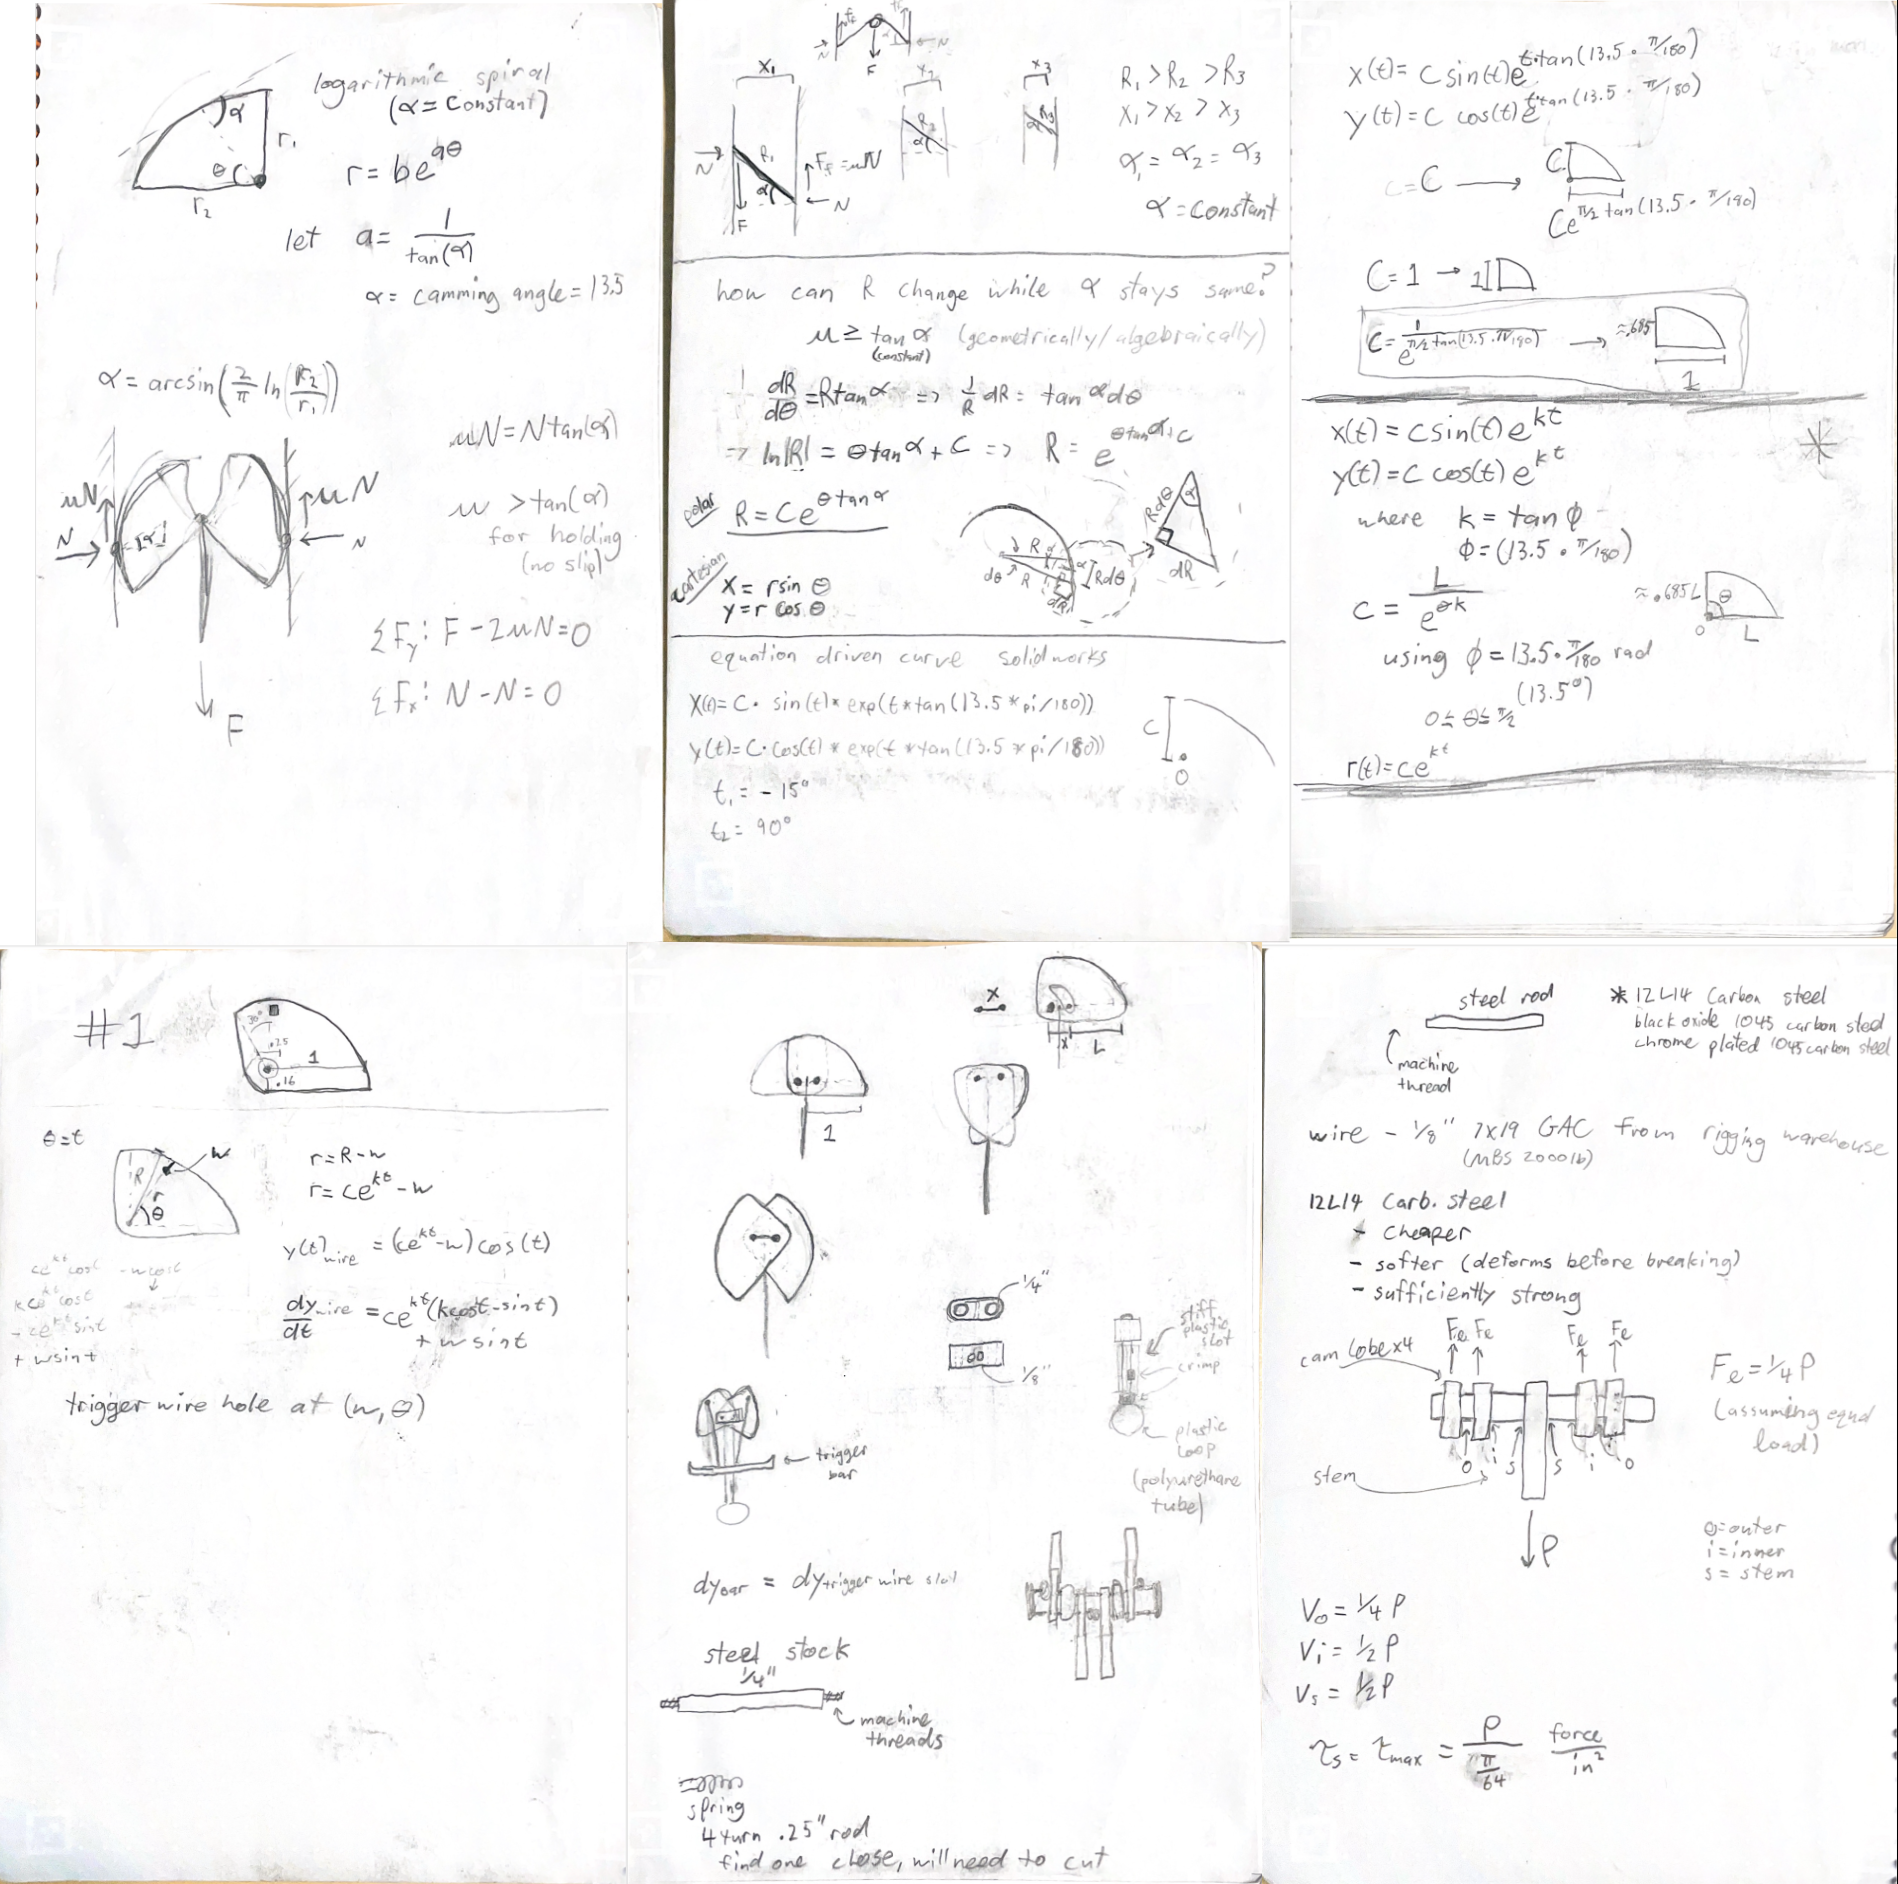 logarithmic spiral
(α = constant)
α
r₁
θ
r₂
r = be^(aθ)
let a = 1/tan(α)
α = camming angle = 13.5
α = arcsin(2/π ln(r₂/r₁))
μN = N tan(α)
μN
μN
N
N
α
μ > tan(α)
for holding
(no slip)
ΣFy: F - 2μN = 0
ΣFx: N - N = 0
F
N
F
N
X₁
X₂
X₃
R₁ > R₂ > R₃
x₁ > x₂ > x₃
α₁ = α₂ = α₃
α = constant
R₁
R₂
R₃
α
α
Ff = μN
N
N
F
how can R change while α stays same?
μ ≥ tan α (geometrically/algebraically)
(constant)
dR/dθ = R tan α => 1/R dR = tan α dθ
=> ln|R| = θ tan α + C => R = e^(θ tan α + c)
polar
R = Ce^(θ tan α)
cartesian
x = r sin θ
y = r cos θ
R
α
dθ
R
Rdθ
dR
Rdθ
α
dR
equation driven curve solidworks
X(t) = C · sin(t) * exp(t * tan(13.5 * pi/180))
y(t) = C · cos(t) * exp(t * tan(13.5 * pi/180))
t₁ = -15°
t₂ = 90°
C
O
x(t) = C sin(t) e^(t·tan(13.5 · π/180))
y(t) = C cos(t) e^(t·tan(13.5 · π/180))
c = C
C
Ce^(π/2 tan(13.5 · π/180))
C = 1 → 1
C = 1/e^(π/2 tan(13.5 · π/180))
≈ .685
1
x(t) = c sin(t) e^(kt)
y(t) = c cos(t) e^(kt)
where k = tan ϕ
ϕ = (13.5 · π/180)
c = L/e^(θk)
≈ .685L
θ
O
L
using ϕ = 13.5 · π/180 rad
(13.5°)
0 ≤ θ ≤ π/2
r(t) = ce^(kt)
#1
30°
.25
1
.16
θ = t
R
r
θ
w
r = R - w
r = ce^(kt) - w
y(t)wire = (ce^(kt) - w) cos(t)
dy wire/dt = ce^(kt)(k cos t - sin t)
+ w sin t
ce^(kt) cos t - w cos t
kce^(kt) cos t
- ce^(kt) sin t
+ w sin t
trigger wire hole at (w, θ)
x
x
L
1
1/4"
1/8"
stiff
plastic
slot
crimp
plastic
loop
(polyurethane
tube)
trigger
bar
dy bar = dy trigger wire slot
steel stock
1/4"
machine
threads
spring
4 turn .25" rod
find one close, will need to cut
steel rod
machine
thread
* 12L14 Carbon steel
black oxide 1045 carbon steel
chrome plated 1045 carbon steel
wire - 1/8" 7x19 GAC from rigging warehouse
(MBS 2000lb)
12L14 Carb. steel
- cheaper
- softer (deforms before breaking)
- sufficiently strong
Fe Fe Fe Fe
cam lobe x4
Fe = 1/4 P
(assuming equal
load)
o i s s i o
stem
P
o = outer
i = inner
s = stem
Vo = 1/4 P
Vi = 1/2 P
Vs = 1/2 P
τs = τmax = P/(π/64) force/in²